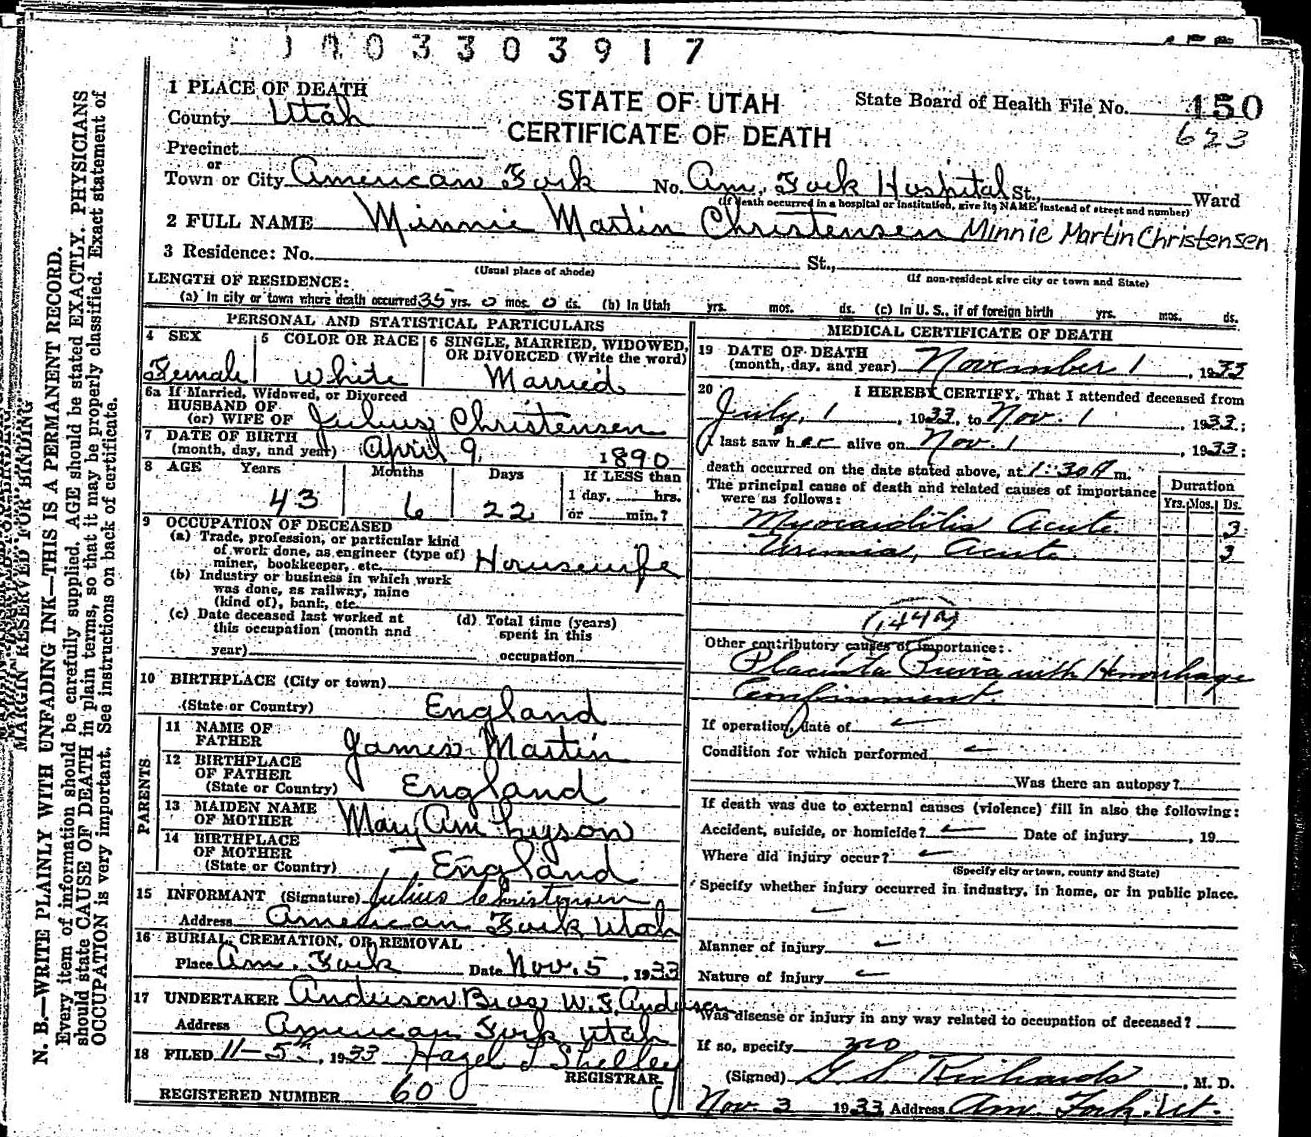 0 3 3 0 3 9 1 7
1 PLACE OF DEATH
STATE OF UTAH
CERTIFICATE OF DEATH
State Board of Health File No. 150
623
County Utah
Precinct
or
Town or City American Fork No. Am. Fork Hospital St., Ward
(If death occurred in a hospital or institution, give its NAME instead of street and number)
2 FULL NAME Minnie Martin Christensen Minnie Martin Christensen
3 Residence: No. St.,
(Usual place of abode) (If non-resident give city or town and State)
LENGTH OF RESIDENCE:
(a) In city or town where death occurred 35 yrs. 0 mos. 0 ds. (b) In Utah yrs. mos. ds. (c) In U. S., if of foreign birth yrs. mos. ds.
PERSONAL AND STATISTICAL PARTICULARS
4 SEX 5 COLOR OR RACE 6 SINGLE, MARRIED, WIDOWED, OR DIVORCED (Write the word)
Female White Married
6a If Married, Widowed, or Divorced
HUSBAND OF
(or) WIFE OF Julius Christensen
7 DATE OF BIRTH
(month, day, and year) April 9 1890
8 AGE Years Months Days If LESS than
1 day, hrs.
43 6 22 or min.?
9 OCCUPATION OF DECEASED
(a) Trade, profession, or particular kind
of work done, as engineer (type of)
miner, bookkeeper, etc. Housewife
(b) Industry or business in which work
was done, as railway, mine
(kind of), bank, etc.
(c) Date deceased last worked at
this occupation (month and
year)
(d) Total time (years)
spent in this
occupation
10 BIRTHPLACE (City or town)
(State or Country) England
PARENTS
11 NAME OF
FATHER James Martin
12 BIRTHPLACE
OF FATHER
(State or Country) England
13 MAIDEN NAME
OF MOTHER Mary Ann Lyson
14 BIRTHPLACE
OF MOTHER
(State or Country) England
15 INFORMANT (Signature) Julius Christensen
Address American Fork Utah
16 BURIAL, CREMATION, OR REMOVAL
Place Am. Fork Date Nov. 5, 1933
17 UNDERTAKER Anderson Bros W. S. Anderson
Address American Fork Utah
18 FILED 11-5th, 1933 Hazel J Shelley
REGISTRAR
REGISTERED NUMBER 60
MEDICAL CERTIFICATE OF DEATH
19 DATE OF DEATH
(month, day, and year) November 1, 1933
20 I HEREBY CERTIFY, That I attended deceased from
July, 1, 1933, to Nov. 1, 1933;
I last saw her alive on Nov. 1, 1933;
death occurred on the date stated above, at 1:30 A m.
The principal cause of death and related causes of importance
were as follows:
Duration
Yrs. Mos. Ds.
Myocarditis Acute 3
Uremia, Acute 3
144a
Other contributory causes of importance:
Placenta Previa with Hemorrhage
Confinement.
If operation, date of
Condition for which performed
Was there an autopsy?
If death was due to external causes (violence) fill in also the following:
Accident, suicide, or homicide? Date of injury, 19
Where did injury occur?
(Specify city or town, county and State)
Specify whether injury occurred in industry, in home, or in public place.
Manner of injury
Nature of injury
Was disease or injury in any way related to occupation of deceased?
If so, specify no
(Signed) G S Richards, M. D.
Nov. 3 1933 Address Am. Fork. Ut.
MARGIN RESERVED FOR BINDING
N. B.—WRITE PLAINLY WITH UNFADING INK—THIS IS A PERMANENT RECORD.
Every item of information should be carefully supplied. AGE should be stated EXACTLY. PHYSICIANS
should state CAUSE OF DEATH in plain terms, so that it may be properly classified. Exact statement of
OCCUPATION is very important. See instructions on back of certificate.